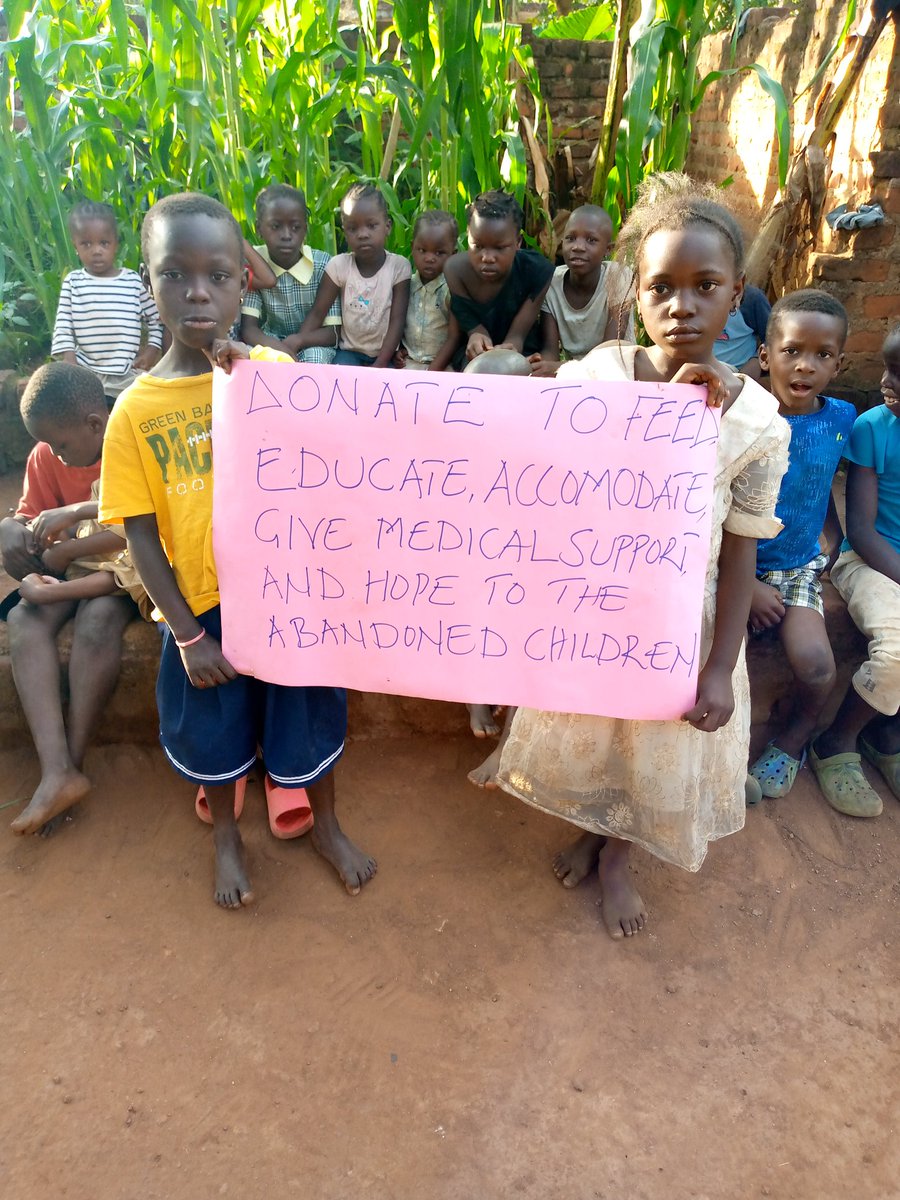 GREEN BA
PACK
FOO
DONATE TO FEED
EDUCATE, ACCOMODATE,
GIVE MEDICAL SUPPORT,
AND HOPE TO THE
ABANDONED CHILDREN